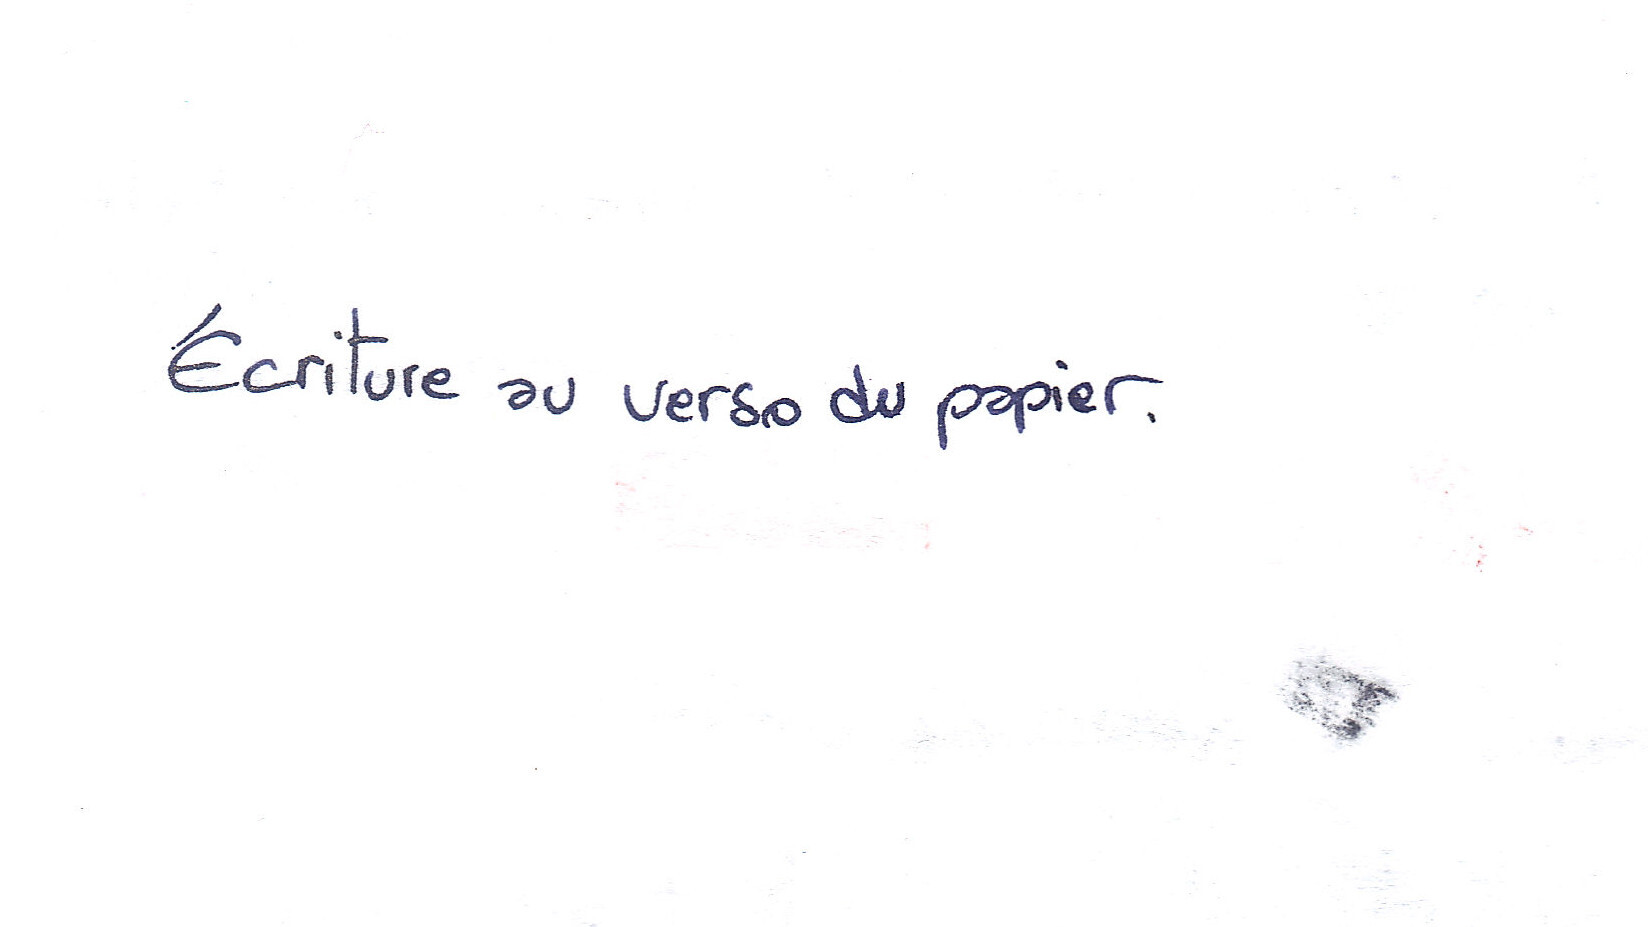 Écriture au verso du papier.